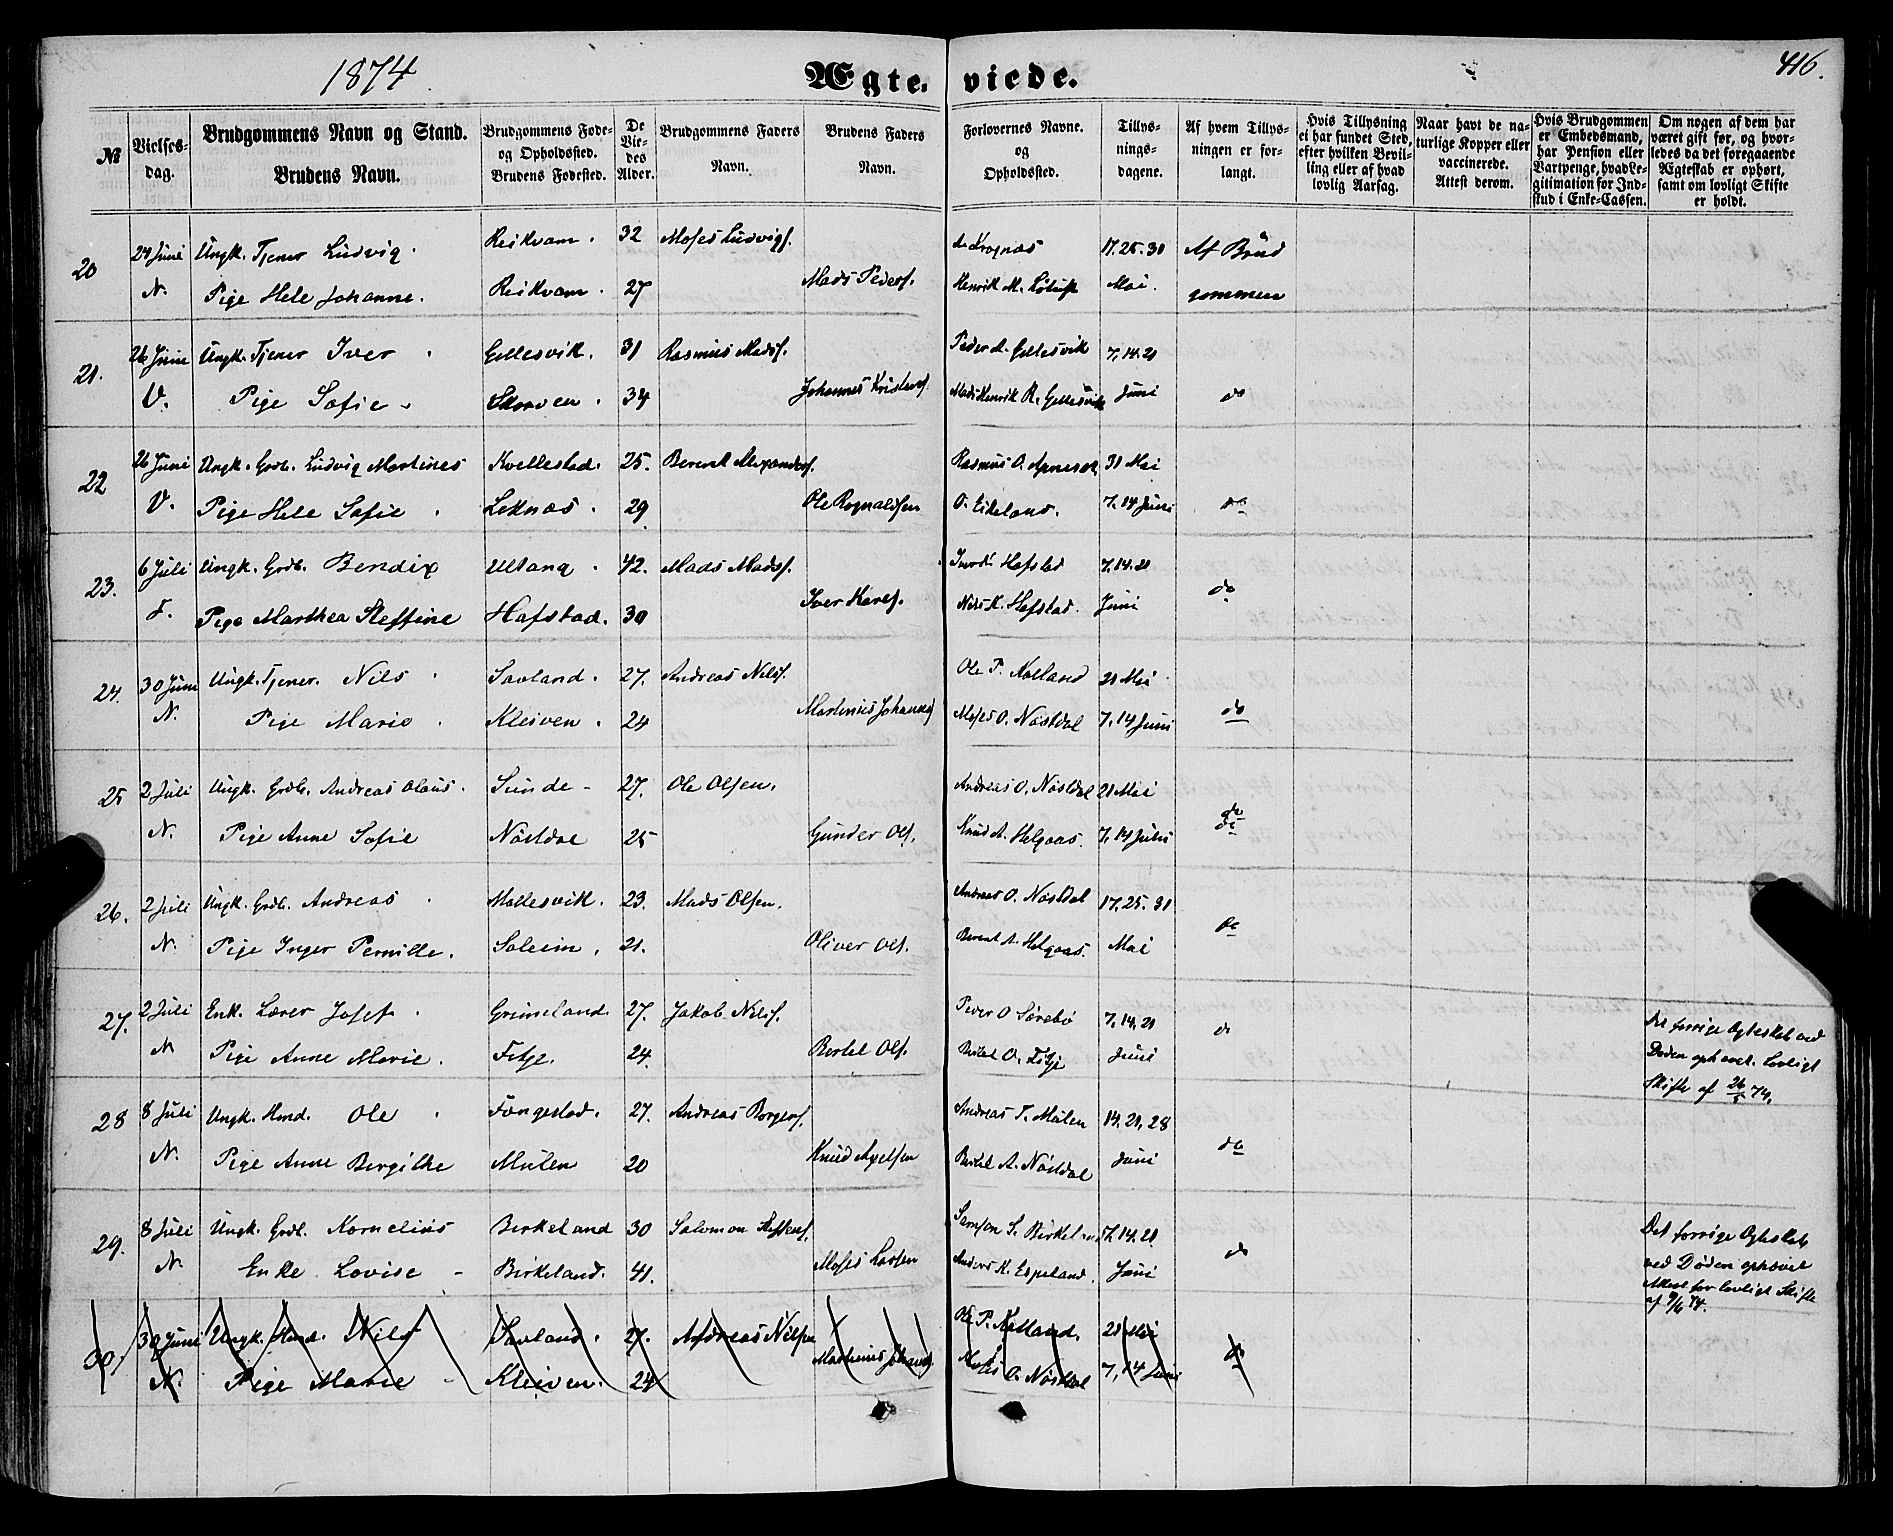 1874
Ægteviede.
416.
№
Vielses-dag.
Brudgommens Navn og Stand.
Brudens Navn.
Brudgommens Føde- og Opholdssted.
Brudens Fødested.
De Vie-des Alder.
Brudgommens Faders Navn.
Brudens Faders Navn.
Forlovernes Navne. og Opholdssted.
Tillys-nings-dagene.
Af hvem Tillys-ningen er for-langt.
Hvis Tillysning ei har fundet Sted, efter hvilken Bevil-ling eller af hvad lovlig Aarsag.
Naar havt de na-turlige Kopper eller vaccinerede. Attest derom.
Hvis Brudgommen er Embedsmand, har Pension eller Vartpenge, hvad Le-gitimation for Ind-skud i Enke-Cassen.
Om nogen af dem har været gift før, og hvor-ledes da det foregaaende Ægteskab er ophørt, samt om lovligt Skifte er holdt.
20 24 Juni Ungk. Tjener Ludvig. Reikvam. 32 Moses Ludvigs. 17.25.31 Af Brud
N. Pige Hele Johanne. Reikvam. 27 Mads Peders. Henrik M. Mai. gommen
21. 26 Juni Ungk. Tjener Iver Gellesvik. 31 Rasmus Mads. Peder A. Gellesvik 7,14.21
V. Pige Sofie Skorven. 34 Johannes Kristens. Mads Henrik R. Gellesvik Juni do
22 26 Juni Ungk. Grdb. Ludvig Martines Kvellestad. 25. Berent Alexanders. Rasmus O. 31 Mai
V. Pige Hele Sofie Leknæs. 29 Ole Rognaldsen O. Eikeland. 7.14 Juni do
23. 6 Juli Ungk. Grdb. Bendix Ullang 42. Mads Mads. Hafstad 7.14.21
F. Pige Marthea Steffine Hafstad. 30 Iver Kares. Nils K. Hafstad. Juni do
24. 30 Juni Ungk. Tjener. Nils Savland. 27. Andreas Nils. Ole P. Kalland 21 Mai
N. Pige Marie Kleiven. 24 Martinius Johannes. Moses O. Nøstdal 7,14 Juni do
25 2 Juli Ungk. Grdb. Andreas Olaus. Sunde 27. Ole Olsen. Andreas O. Nøstdal 21 Mai
N. Pige Anne Sofie Nøstdal 25 Gunder Ols. Knud A. Helgaas. 7,14 Juni do
26. 2 Juli Ungk. Grdb. Andreas Mallesvik. 23. Mads Olsen. Andreas O. Nøstdal 17,25.31
N. Pige Inger Pernille. Soleim. 21. Oliver Ols. Berent A. Helgaas. Mai do
27. 2 Juli Enk. Lærer Josef Grimeland. 27. Jakob Nils. Peder O Sørebø 7,14,21
N Pige Anne Marie. Fitje. 24. Bertel Ols. Bertel O. Fitje Juni do
Det forrige Ægteskab ved
Døden ophævet. Lovligt
Skifte af 26/5 74.
28 8 Juli Ungk. Hmd. Ole Fongestad. 27. Andreas Borgers. Andreas T. Mulen 14,21,28
N. Pige Anne Bergithe Mulen 20 Knud Axelsen Bertel A. Nøstdal Juni do
29. 8 Juli Ungk. Grdb. Kornelius Birkeland 30 Salomon Steffens. Samson S. Birkeland 7,14.21
N. Enke Lovise Birkeland. 41. Moses Larsen Anders K. Espeland. Juni do
Det forrige Ægteskab
ved Døden ophævet
Attest for lovligt Skifte
af 9/6 74.
30. 30 Juni Ungk. Hmd. Nils Savland. 27. Andreas Nilsen Ole P. Kalland. 21 Mai
N. Pige Marie Kleiven. 24 Martinius Johannes. Moses O. Nøstdal 7,14 Juni do